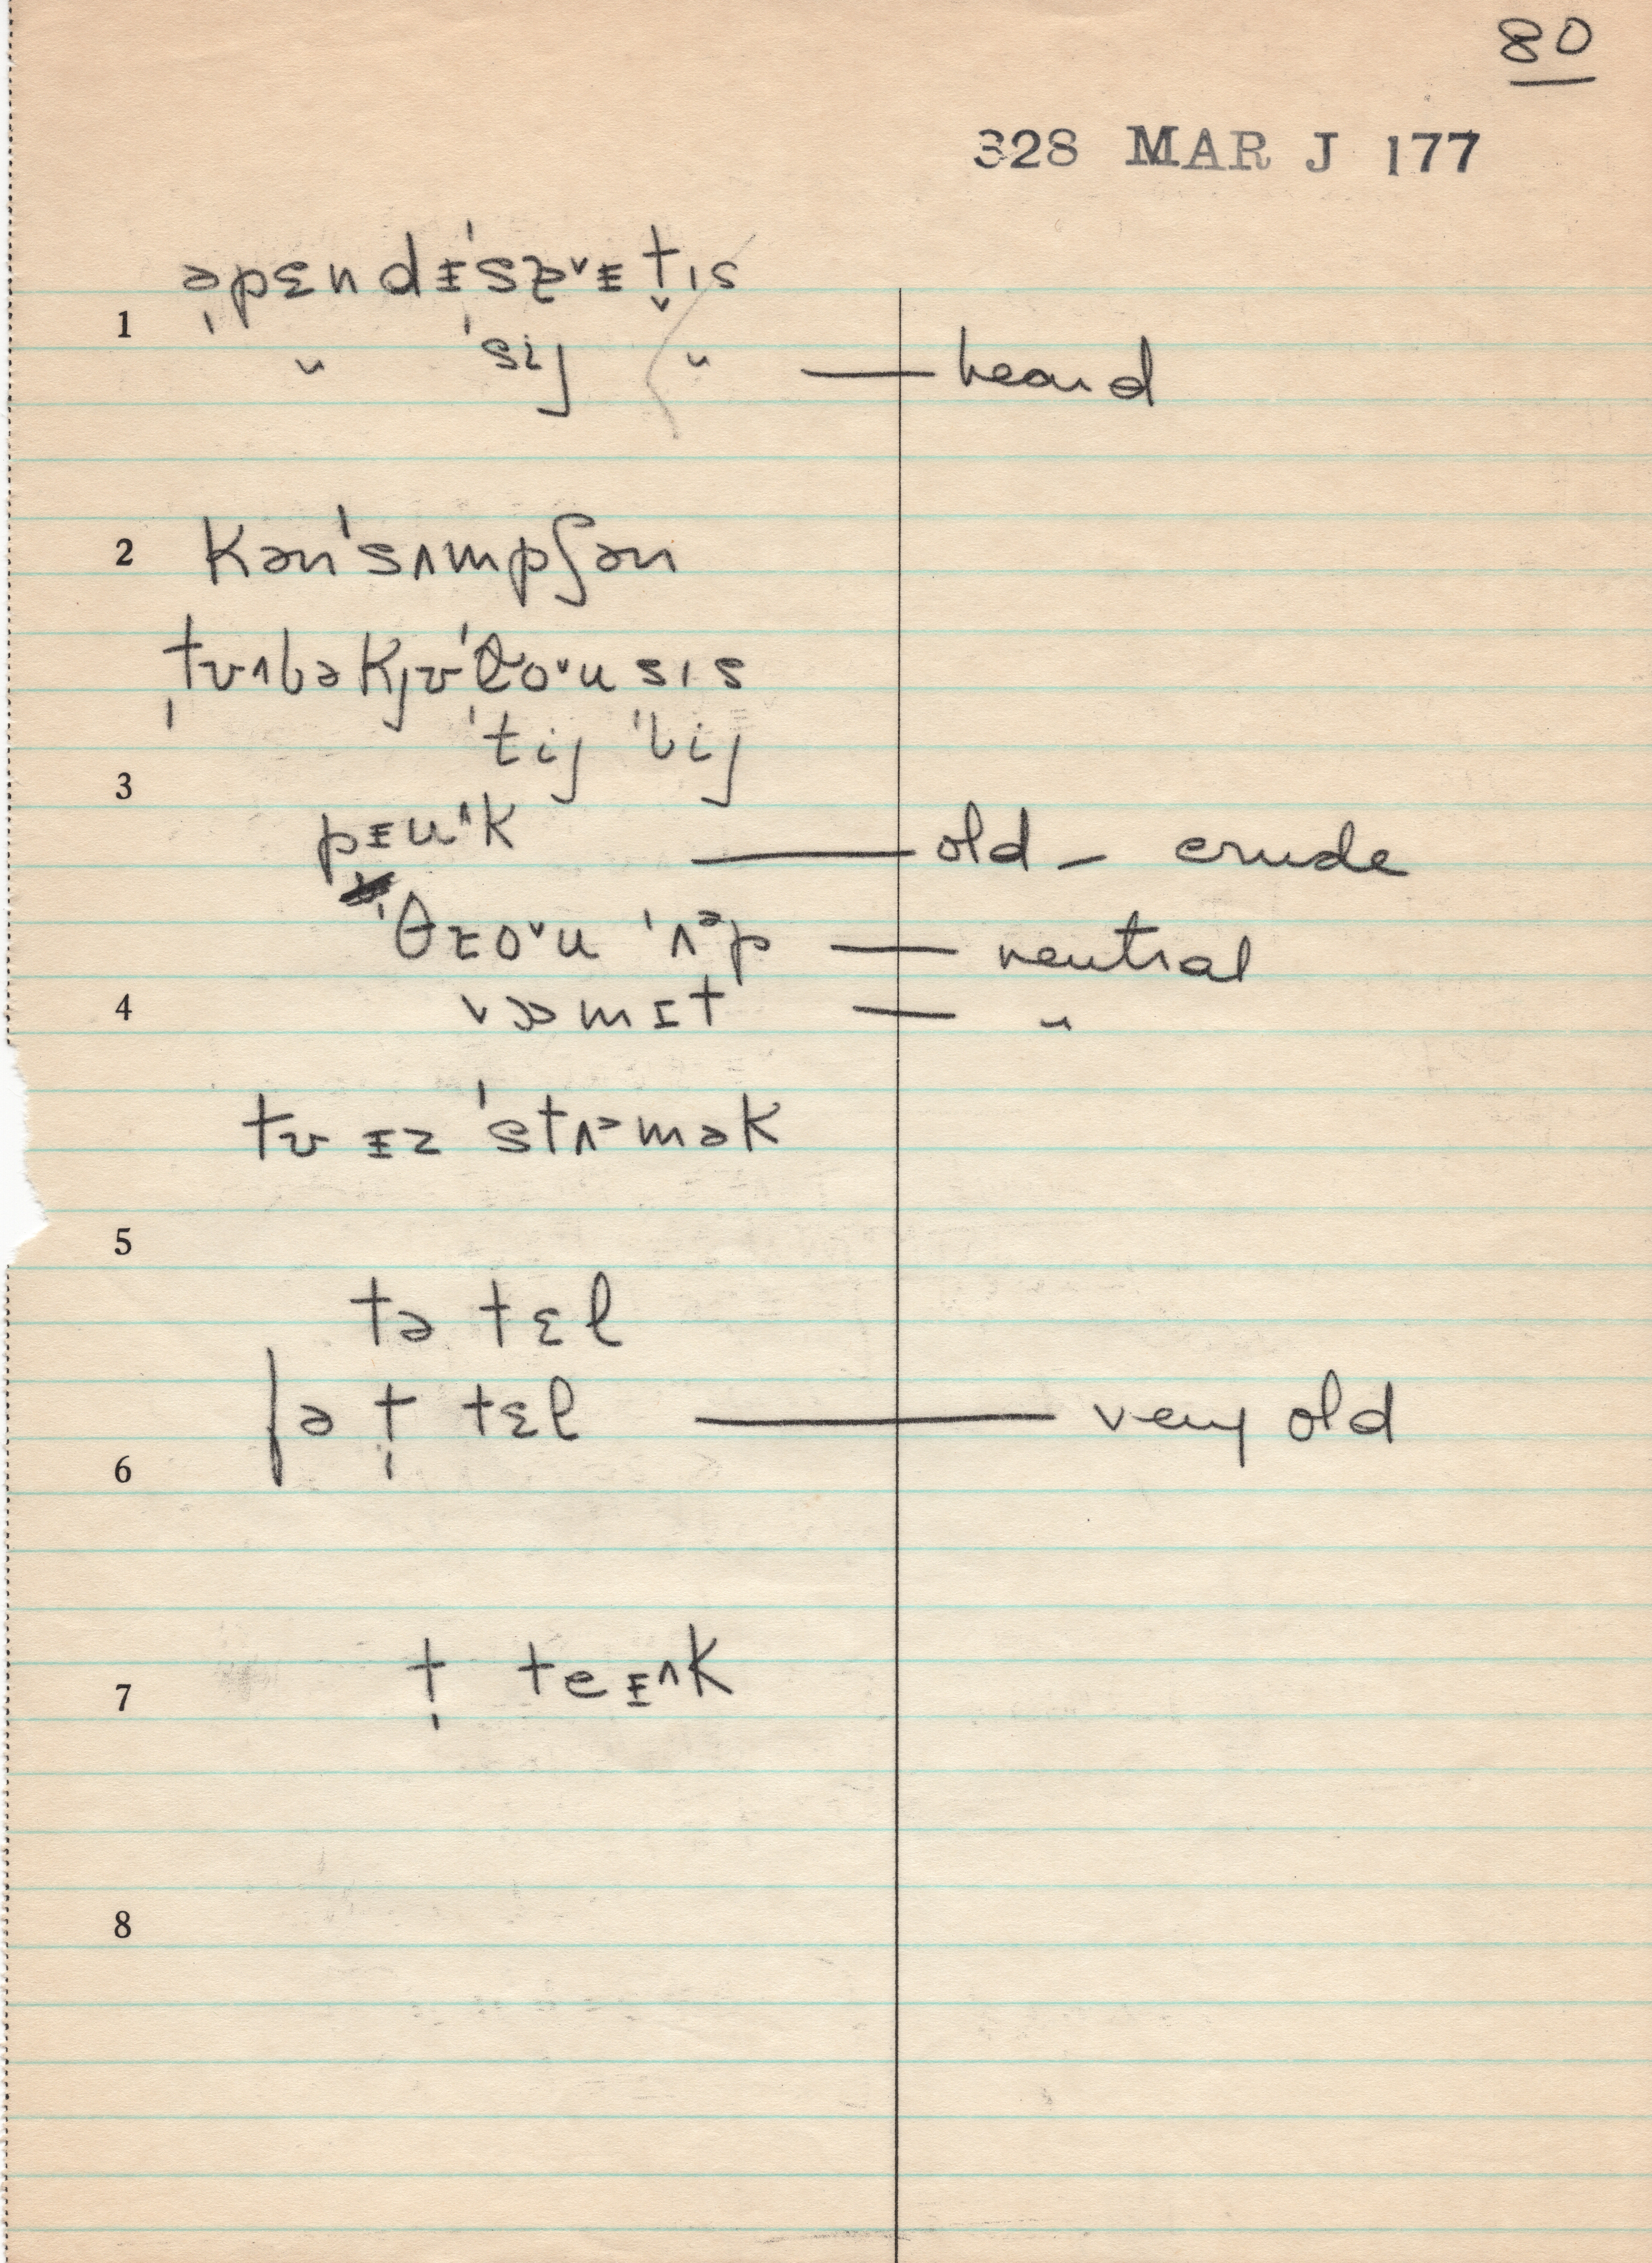 80
328 MAR J 177
əpɛndɪ'sɐᵛɪtɪs
1
" 'sij " — heard
2 kən'sʌmpʃən
tɤʌbəkjɤ'ɬoᵛusɪs
'tij 'bij
3
pɪuᶺk — old — crude
'θɾoᵛu 'ʌᵊp — neutral
4 vɔmɪt — "
tɤ ɪz 'stʌᵊmək
5
tə tɛl
ʃə t tɛl — very old
6
7 t teɪᶺk
8